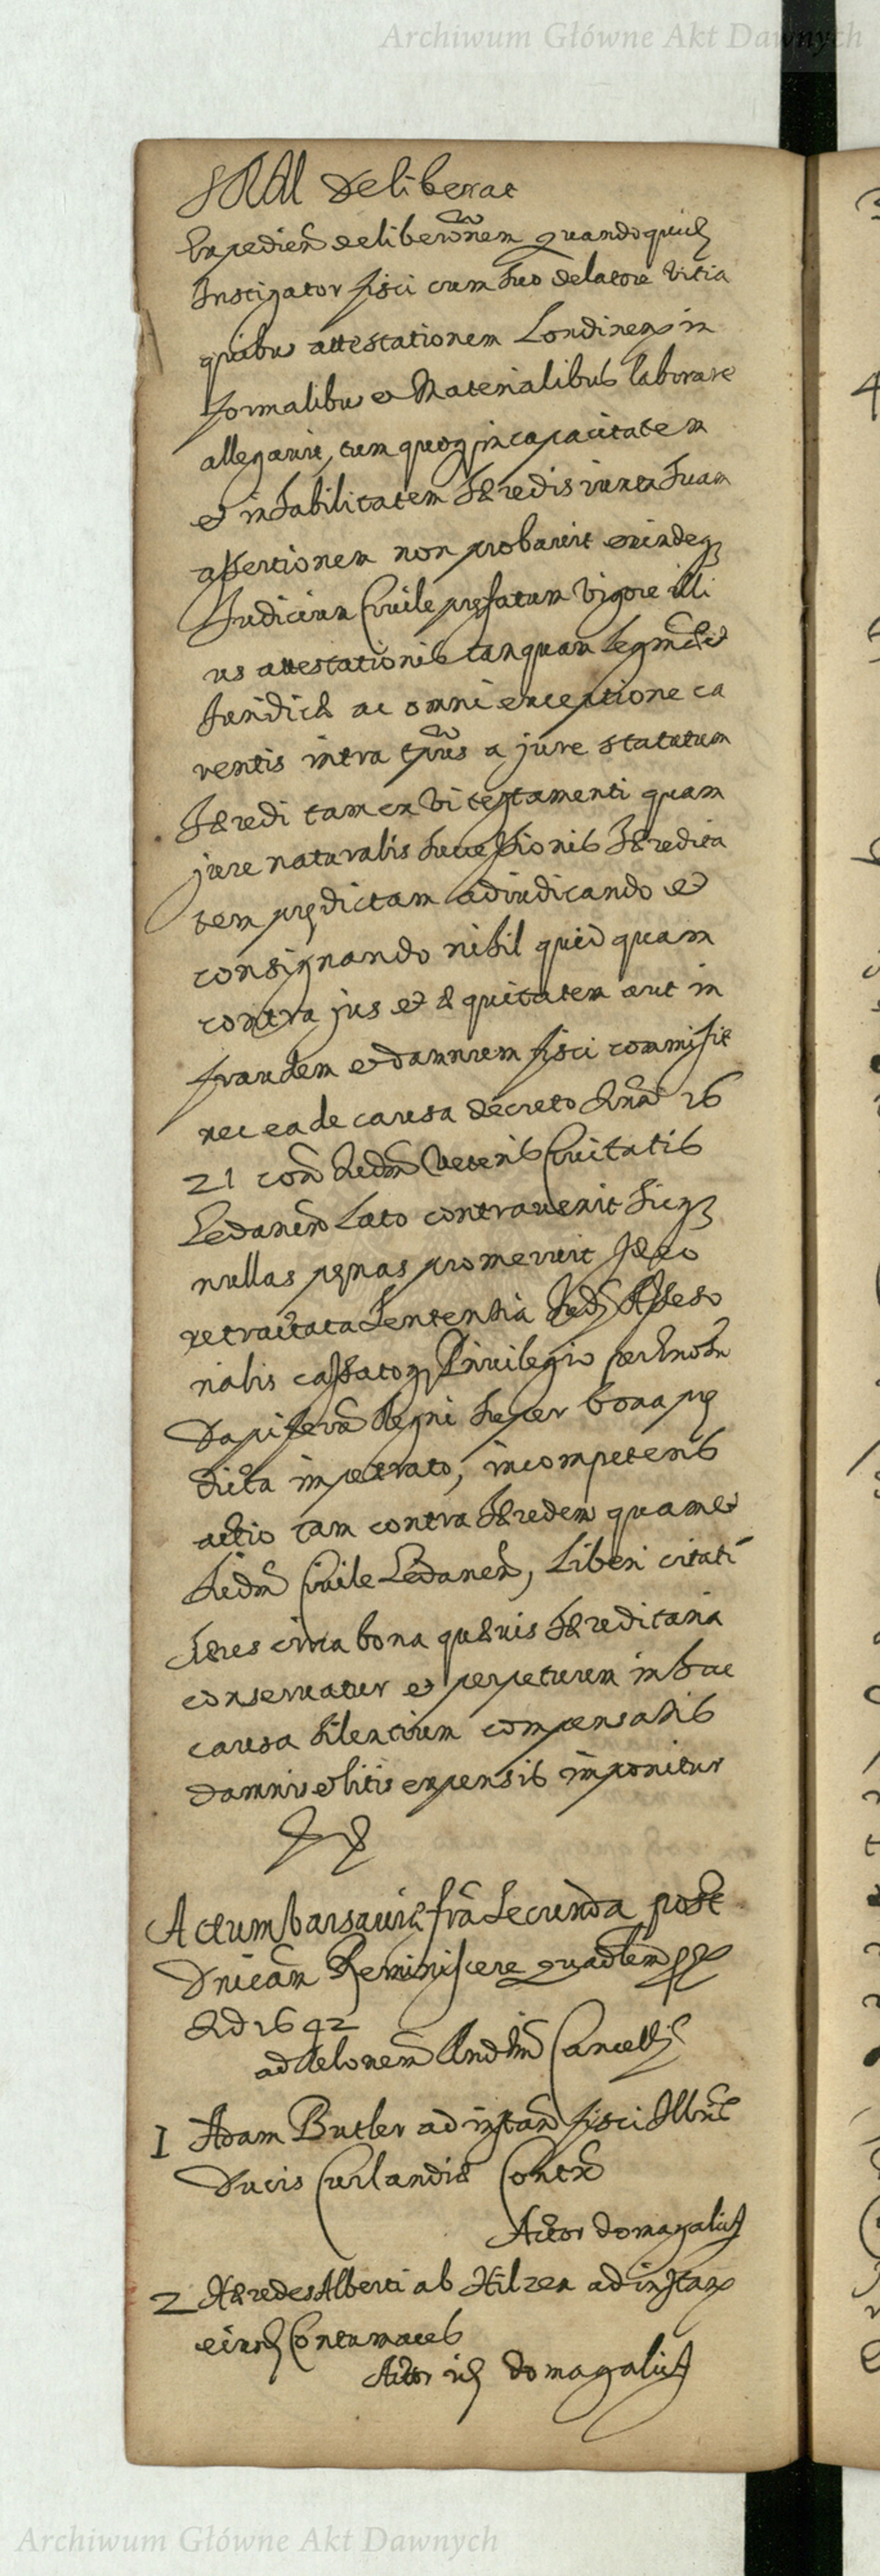 Archiwum Główne Akt Dawnych
SRM deliberat
Expedien deliberonem quandoquid
Instigator fisci cum suo delatore vitia
quibus attestationem Londinen in
formalibus et Materialibus laborare
allegavit, tum quoq incapacitatem
et inhabilitatem Hæredis iuxta suam
assertionem non probavit exindeq
Judicium Civile præfatum vigore illi
us attestationis tanquam
Juridicæ ac omni exceptione ca
rentis intra tpus a jure statutum
Hæredi tam ex vi testamenti quam
jure naturalis successionis Hæredita
tem prædictam adiudicando et
consignando nihil quidquam
contra jus et æquitatem aut in
fraudem et damnum fisci commisit
nec ea de causa decreto Anni 16
21 coram Judm Veteris Civitatis
Gedanen lato contravenit sicq
nullas pœnas promeruit Ideo
retractata sententia Judy Asseso
rialis cassatoq Privilegio per
Dapiferum Regni super bona præ
dicta impetrato, incompetens
actio tam contra Hæredem quam et
Judm Civile Gedanen, Liberi citati
Hæres circa bona quævis Hæreditaria
conservatur et perpetuum in hac
causa silentium compensatis
damnis et litis expensis imponitur
Actum Varsaviæ fra secunda post
Dnicam Reminiscere quadlem
Ad 1642
ad Cancell
1 Adam Butler ad instan fisci Illmi
Ducis Curlandiæ Contx
Actor Domagalius
2 Hæredes Alberti ab Hilzen ad instan
eiusd Contumaces
Actor id Domagalius
Archiwum Główne Akt Dawnych